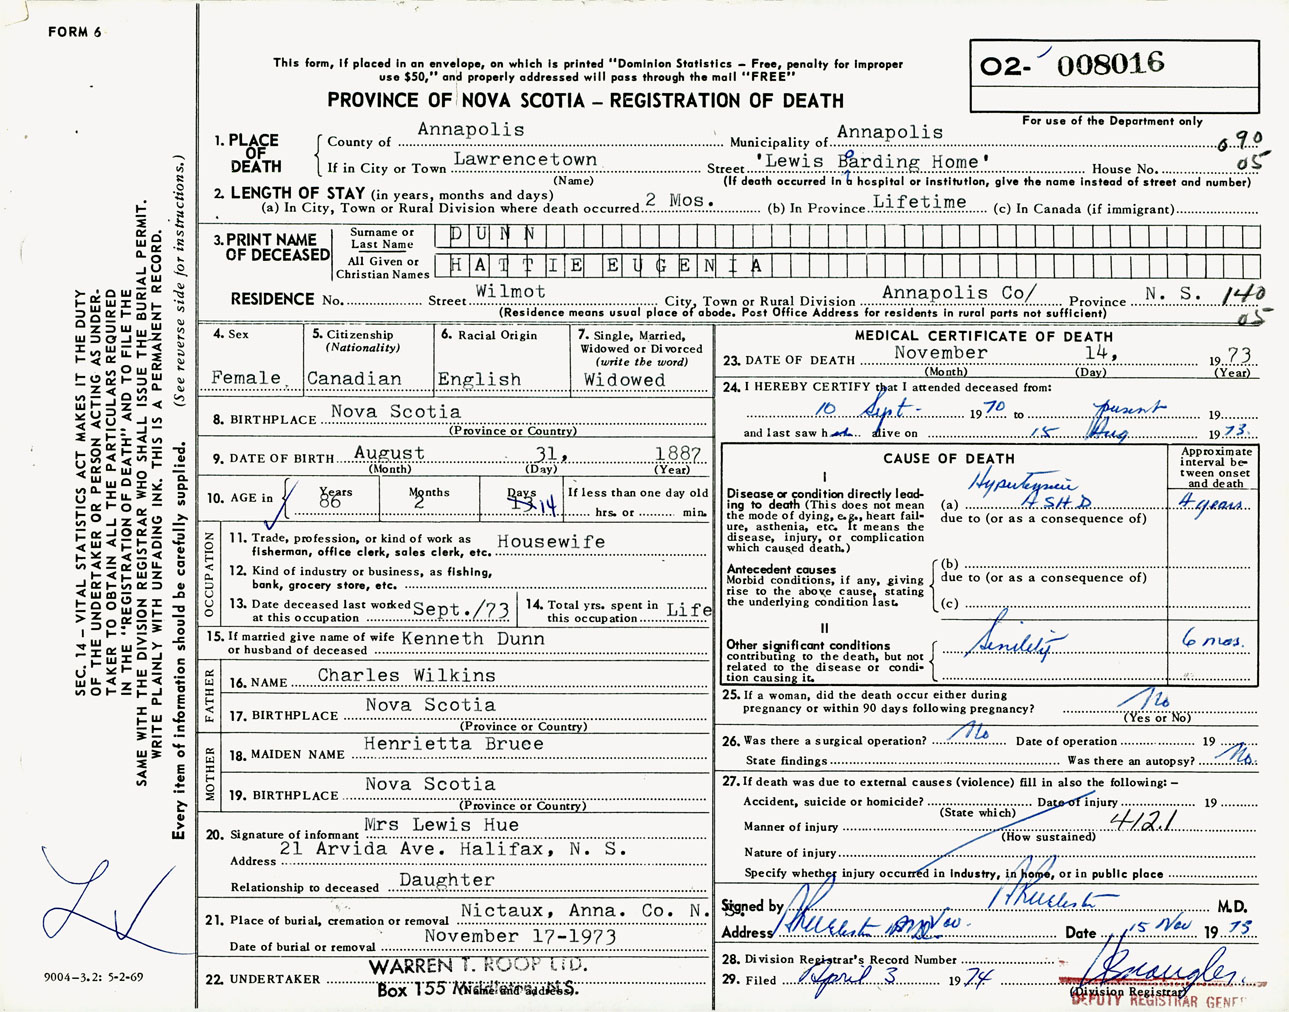 FORM 6
This form, if placed in an envelope, on which is printed "Dominion Statistics – Free, penalty for improper
use $50," and properly addressed will pass through the mail "FREE"
PROVINCE OF NOVA SCOTIA – REGISTRATION OF DEATH
02- 008016
For use of the Department only
1. PLACE OF DEATH
County of Annapolis Municipality of Annapolis 690
If in City or Town Lawrencetown Street 'Lewis Barding Home' House No. 05
(Name) (If death occurred in a hospital or institution, give the name instead of street and number)
2. LENGTH OF STAY (in years, months and days)
(a) In City, Town or Rural Division where death occurred 2 Mos. (b) In Province Lifetime (c) In Canada (if immigrant)
3. PRINT NAME OF DECEASED
Surname or Last Name DUNN
All Given or Christian Names HATTIE EUGENIA
RESIDENCE No. Street Wilmot City, Town or Rural Division Annapolis Co/ Province N. S. 140
(Residence means usual place of abode. Post Office Address for residents in rural parts not sufficient) 05
4. Sex
Female.
5. Citizenship
(Nationality)
Canadian
6. Racial Origin
English
7. Single, Married,
Widowed or Divorced
(write the word)
Widowed
8. BIRTHPLACE Nova Scotia
(Province or Country)
9. DATE OF BIRTH August 31, 1887
(Month) (Day) (Year)
10. AGE in Years Months Days If less than one day old
86 2 14 hrs. or min.
OCCUPATION
11. Trade, profession, or kind of work as Housewife
fisherman, office clerk, sales clerk, etc.
12. Kind of industry or business, as fishing,
bank, grocery store, etc.
13. Date deceased last worked at this occupation Sept./73
14. Total yrs. spent in this occupation Life
15. If married give name of wife or husband of deceased Kenneth Dunn
FATHER
16. NAME Charles Wilkins
17. BIRTHPLACE Nova Scotia
(Province or Country)
MOTHER
18. MAIDEN NAME Henrietta Bruce
19. BIRTHPLACE Nova Scotia
(Province or Country)
20. Signature of informant Mrs Lewis Hue
Address 21 Arvida Ave. Halifax, N. S.
Relationship to deceased Daughter
21. Place of burial, cremation or removal Nictaux, Anna. Co. N.
Date of burial or removal November 17-1973
22. UNDERTAKER WARREN T. ROOP LTD.
Box 155 Middleton, N.S.
(Name and address)
MEDICAL CERTIFICATE OF DEATH
23. DATE OF DEATH November 14, 1973
(Month) (Day) (Year)
24. I HEREBY CERTIFY that I attended deceased from:
10 Sept. 1970 to present 19
and last saw her alive on 15 Aug 1973.
CAUSE OF DEATH
Approximate
interval be-
tween onset
and death
I
Disease or condition directly lead-
ing to death (This does not mean
the mode of dying, e.g., heart fail-
ure, asthenia, etc. It means the
disease, injury, or complication
which caused death.)
Hypertensive
(a) ASHD 4 years
due to (or as a consequence of)
Antecedent causes
Morbid conditions, if any, giving
rise to the above cause, stating
the underlying condition last.
(b)
due to (or as a consequence of)
(c)
II
Other significant conditions
contributing to the death, but not
related to the disease or condi-
tion causing it.
Senility 6 mos.
25. If a woman, did the death occur either during
pregnancy or within 90 days following pregnancy? No
(Yes or No)
26. Was there a surgical operation? No Date of operation 19
State findings Was there an autopsy? No.
27. If death was due to external causes (violence) fill in also the following: –
Accident, suicide or homicide? Date of injury 19
(State which)
Manner of injury 4121
(How sustained)
Nature of injury
Specify whether injury occurred in industry, in home, or in public place
Signed by M.D.
Address Date 15 Nov 1973
28. Division Registrar's Record Number
29. Filed April 3 1974
(Division Registrar)
DEPUTY REGISTRAR GENE
SEC. 14 – VITAL STATISTICS ACT MAKES IT THE DUTY
OF THE UNDERTAKER OR PERSON ACTING AS UNDER-
TAKER TO OBTAIN ALL THE PARTICULARS REQUIRED
IN THE "REGISTRATION OF DEATH" AND TO FILE THE
SAME WITH THE DIVISION REGISTRAR WHO SHALL ISSUE THE BURIAL PERMIT.
WRITE PLAINLY WITH UNFADING INK. THIS IS A PERMANENT RECORD.
Every item of information should be carefully supplied. (See reverse side for instructions.)
9004-3.2: 5-2-69